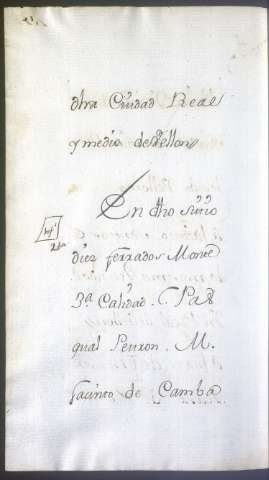 dha Ciudad Real
y medio de Vellon
En dho sitio
diez ferrados Monte
3ª Calidad. Pas
qual Penron. M.
Jacinto de Camba